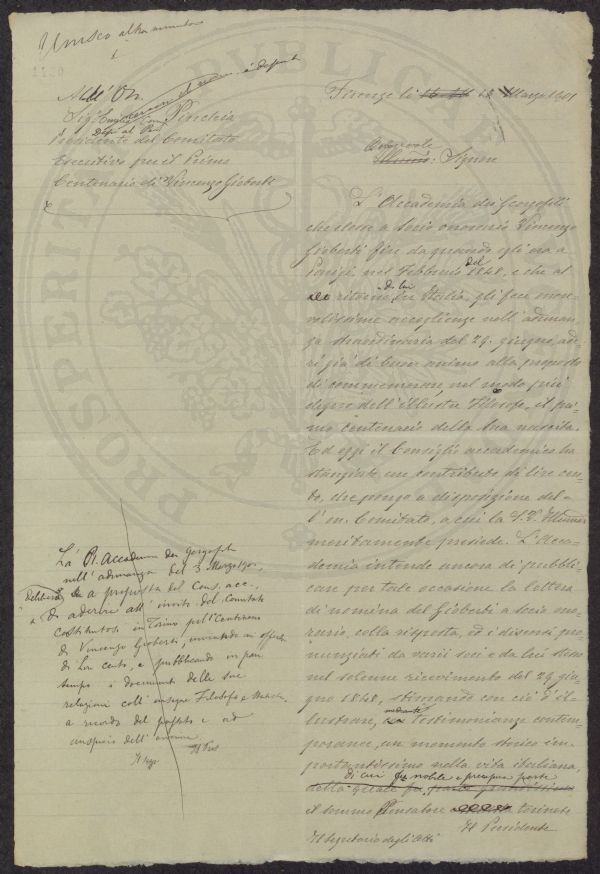 Unisco altra minuta
1120
All' On.
Presidente del Comitato
Esecutivo per il Primo
Centenario di Vincenzo Gioberti
Firenze li 12 Marzo 1901
Onorevole Signore
L'Accademia dei Georgofili
che elesse a Socio onorario Vincenzo
Gioberti fino da quando egli era a
Parigi nel Febbraio del 1848, e che al
di lui ritorno in Italia, gli fece onore-
volissime accoglienze nell'adunan-
za straordinaria del 29. giugno, ade-
rì già di buon animo alla proposta
di commemorare nel modo più
degno dell'illustre Filosofo, il pri-
mo centenario della sua nascita.
Ed oggi il Consiglio accademico ha
stanziato un contributo di lire cen-
to, che pongo a disposizione del-
l'on. Comitato, a cui la S. V. Illma
meritamente presiede. L'Acca-
demia intende ancora di pubbli-
care per tale occasione la lettera
di nomina del Gioberti a socio ono-
rario, colla risposta, ed i discorsi pro-
nunziati da varii soci e da lui stesso
nel solenne ricevimento del 29 giu-
gno 1848, stimando con ciò d'il-
lustrare, mediante testimonianze contem-
poranee, un momento storico im-
portantissimo nella vita italiana,
di cui fu nobile e parte
il sommo Pensatore torinese
Il Presidente
Il Segretario degli Atti
La R. Accademia dei Georgofili
nell'adunanza del 3 Marzo 1901,
delibera a proposta del Cons. acc.,
di aderire all'invito del Comitato
costituitosi in Torino pel Centenario
di Vincenzo Gioberti, inviando un'offerta
di Lire cento, e pubblicando in pari
tempo i documenti delle sue
relazioni coll'insigne Filosofo e
a ricordo del passato e ad
auspicio dell'avvenire
Il Segr. Il Pres
PROSPERITATI PUBLICAE